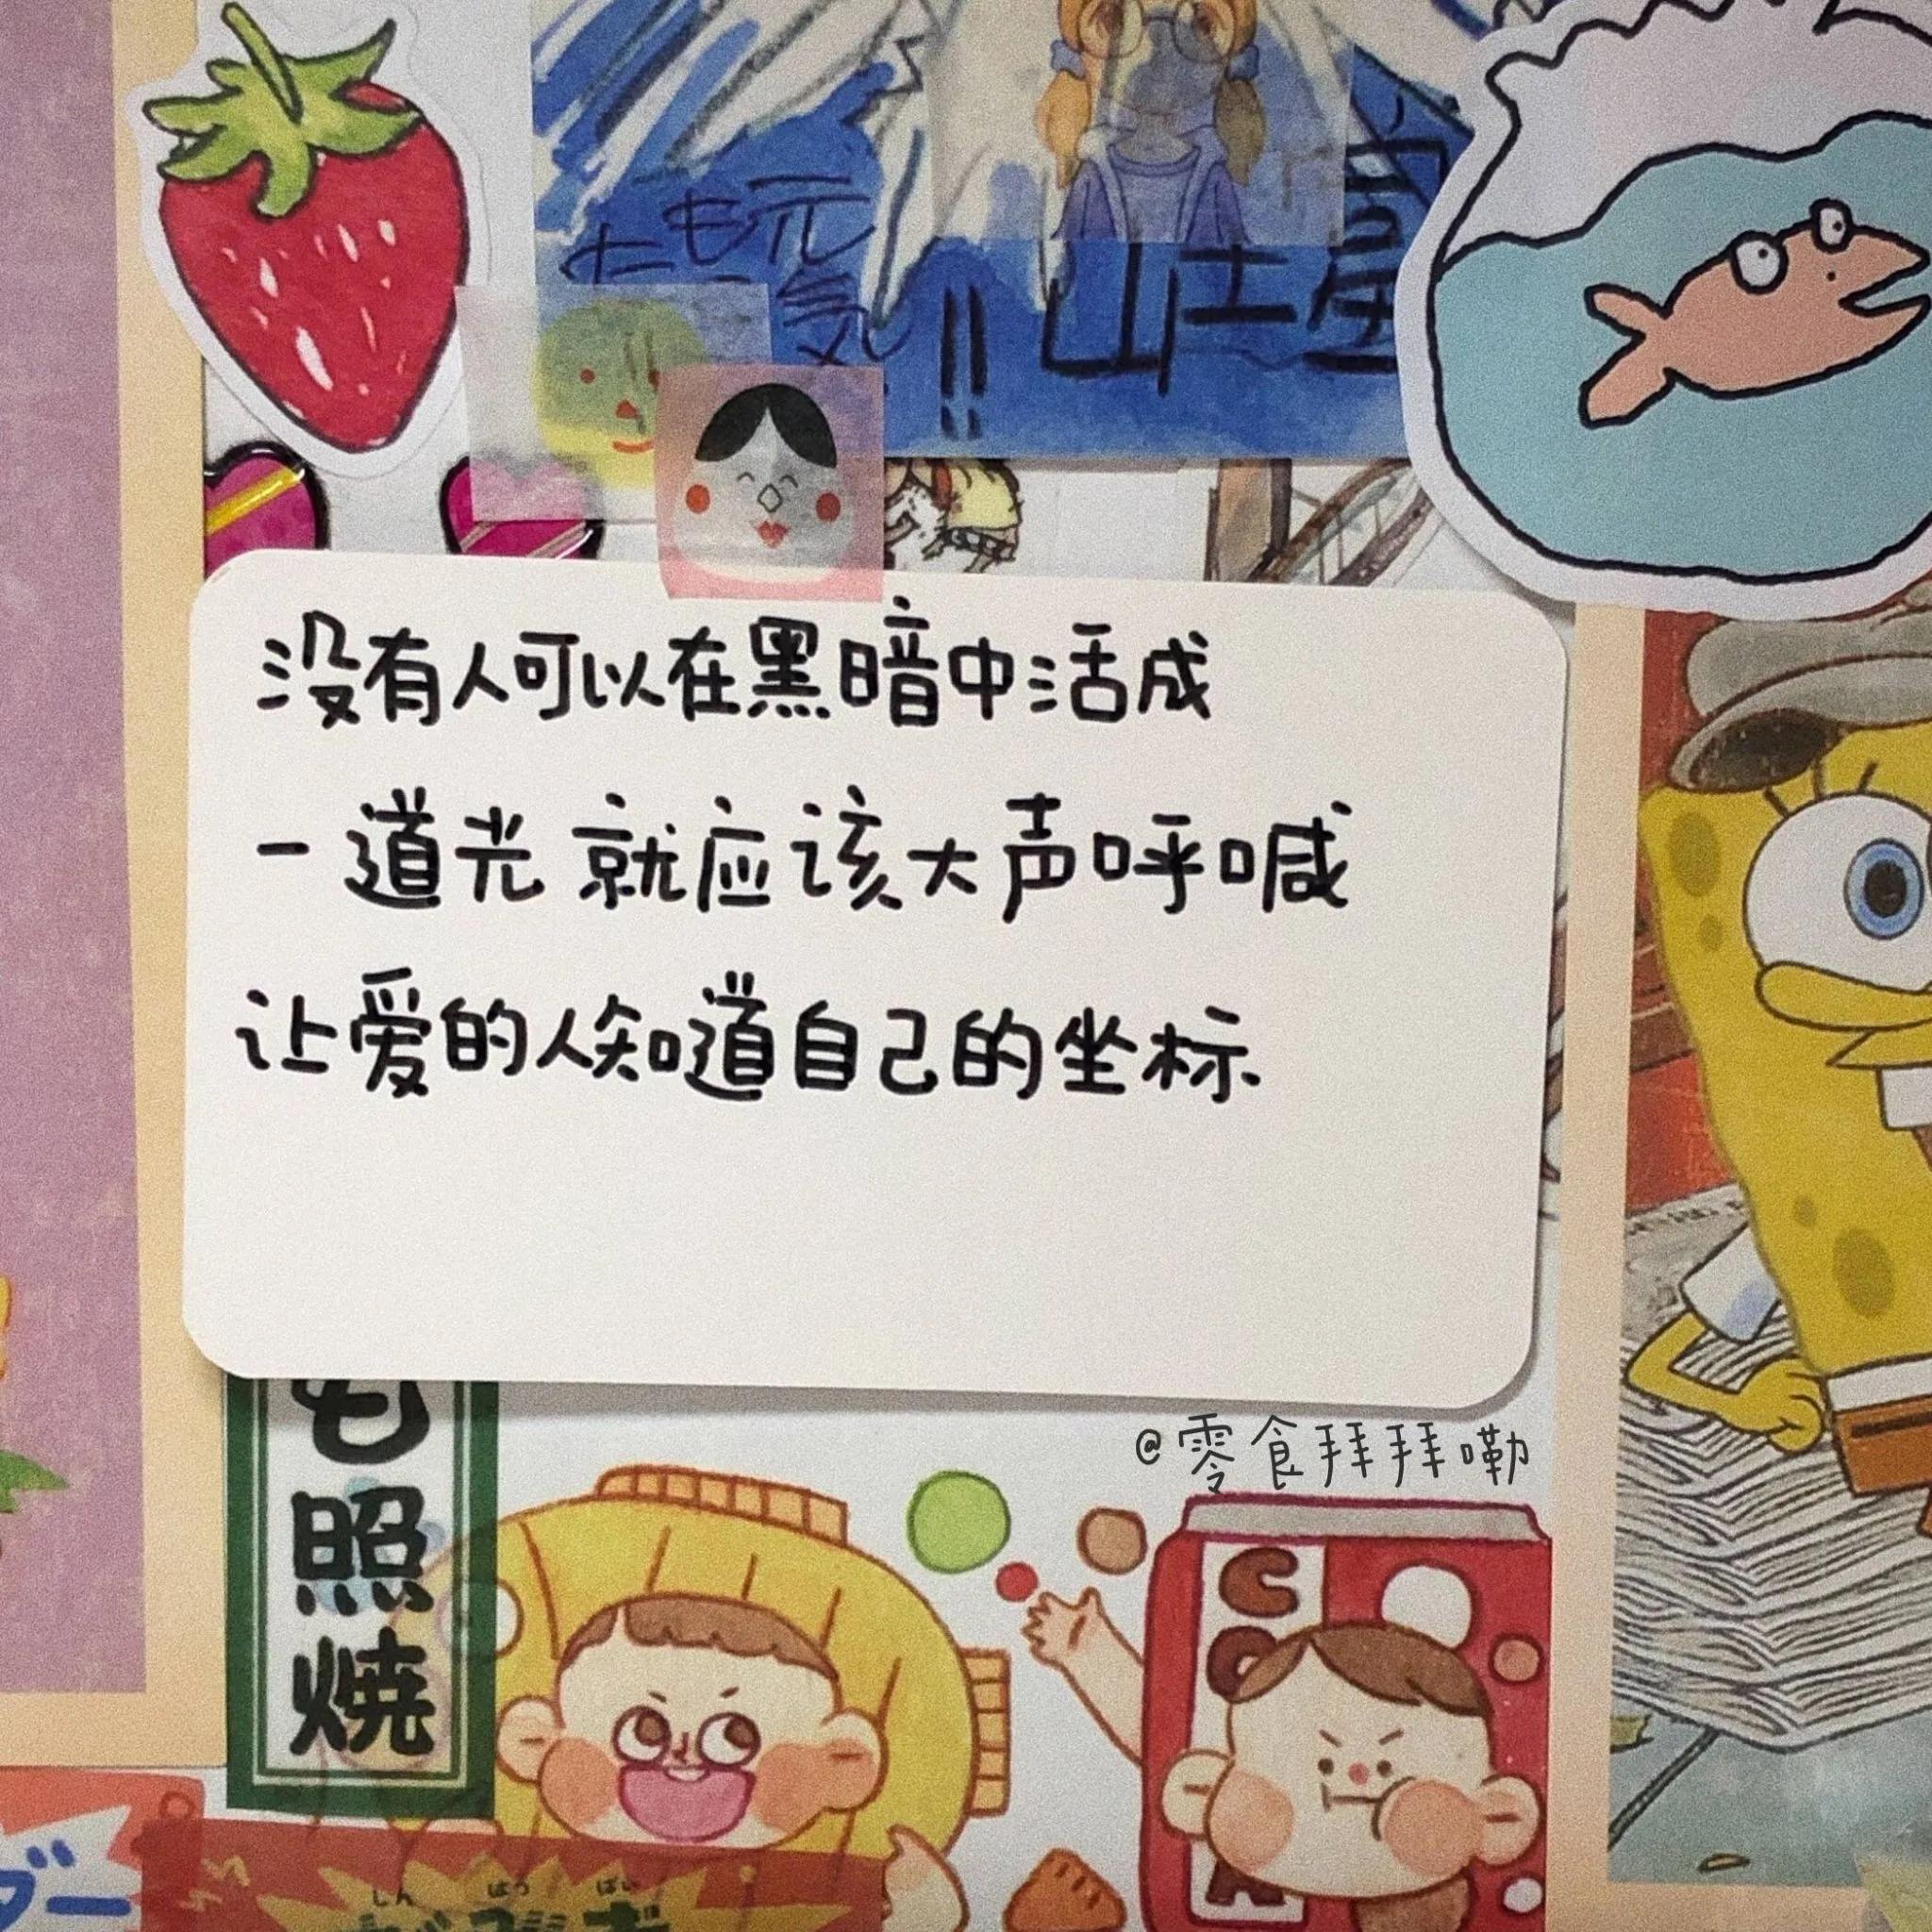 七も元
気
!!
山士富
没有人可以在黑暗中活成
一道光 就应该大声呼喊
让爱的人知道自己的坐标.
@零食拜拜嘞
も照焼
ダー
しん ばつ ばい